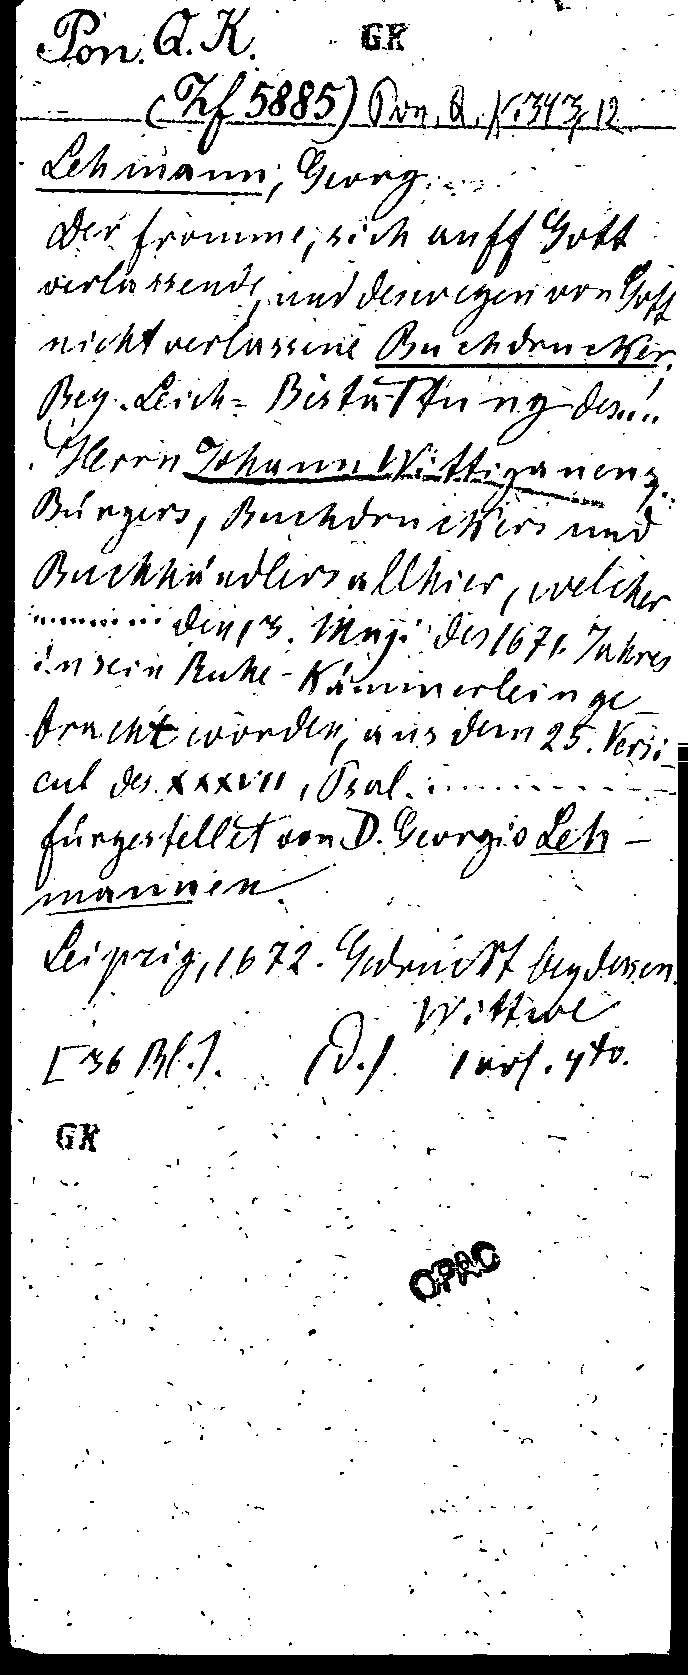 Pon. Q. K. GK
(Zf 5885) Pon. Q. K. 343, 12
Lehmann, Georg.
Der fromme, sich auff Gott
verlassende, und deswegen von Gott
nicht verlassene Buchdrucker,
Bey Leich-Bestattung des...
Herrn Johann Wittigauens,
Bürgers, Buchdruckers und
Buchhändlers allhier, welcher
......... den 13. Maji des 1671. Jahres
in sein Ruhe-Kämmerlein ge-
bracht worden, aus dem 25. Versi-
cul des XXXVII, Psal. ..........
fürgestellet von D. Georgio Leh-
mannen.
Leipzig, 1672. Gedruckt bey dessen
Wittwe
[36 Bl.]. (D.) 4to.
GK
OPAC